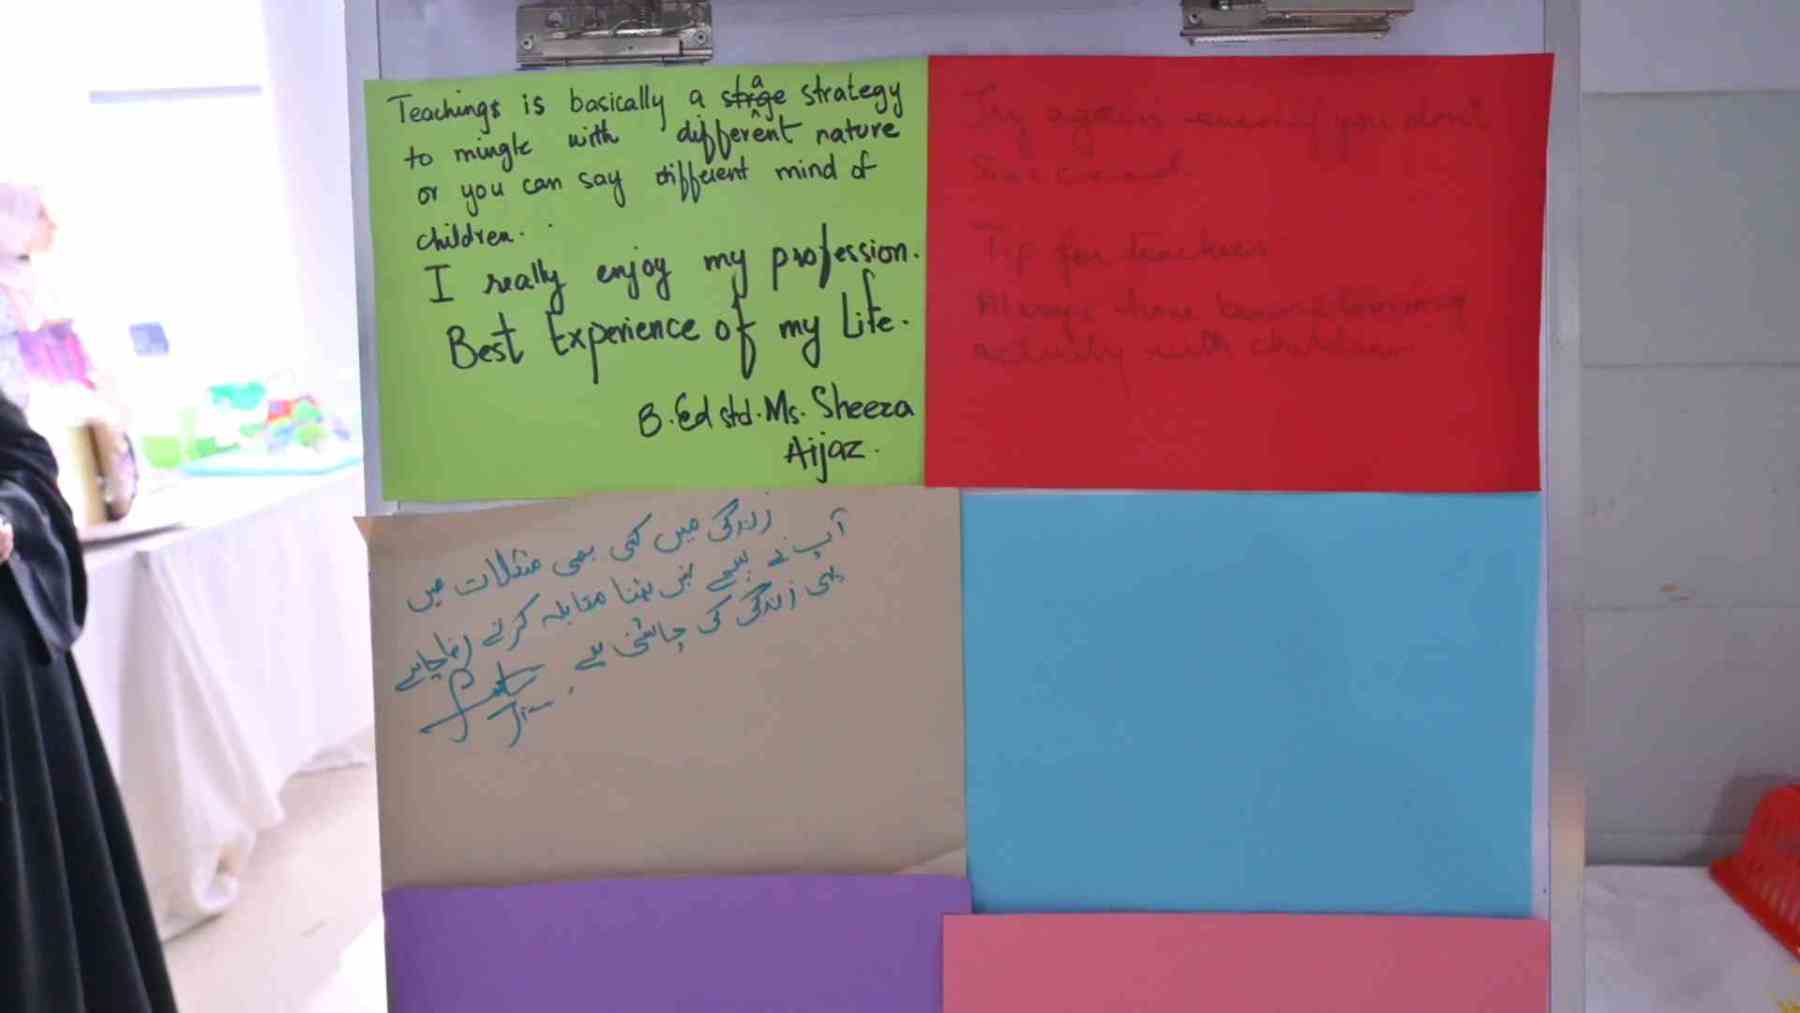 Teachings is basically a strage strategy
to mingle with different nature
or you can say different mind of
children.
I really enjoy my profession.
Best Experience of my Life.
B.Ed std. Ms. Sheeza
Aijaz.
Try again even if you don't
Tip for teachers
Always have
activity with children
زندگی میں کتنی بھی مشکلات ہیں
آپ نے مقابلہ کرتے رہنا چاہیے
یہی زندگی کی چاشنی ہے